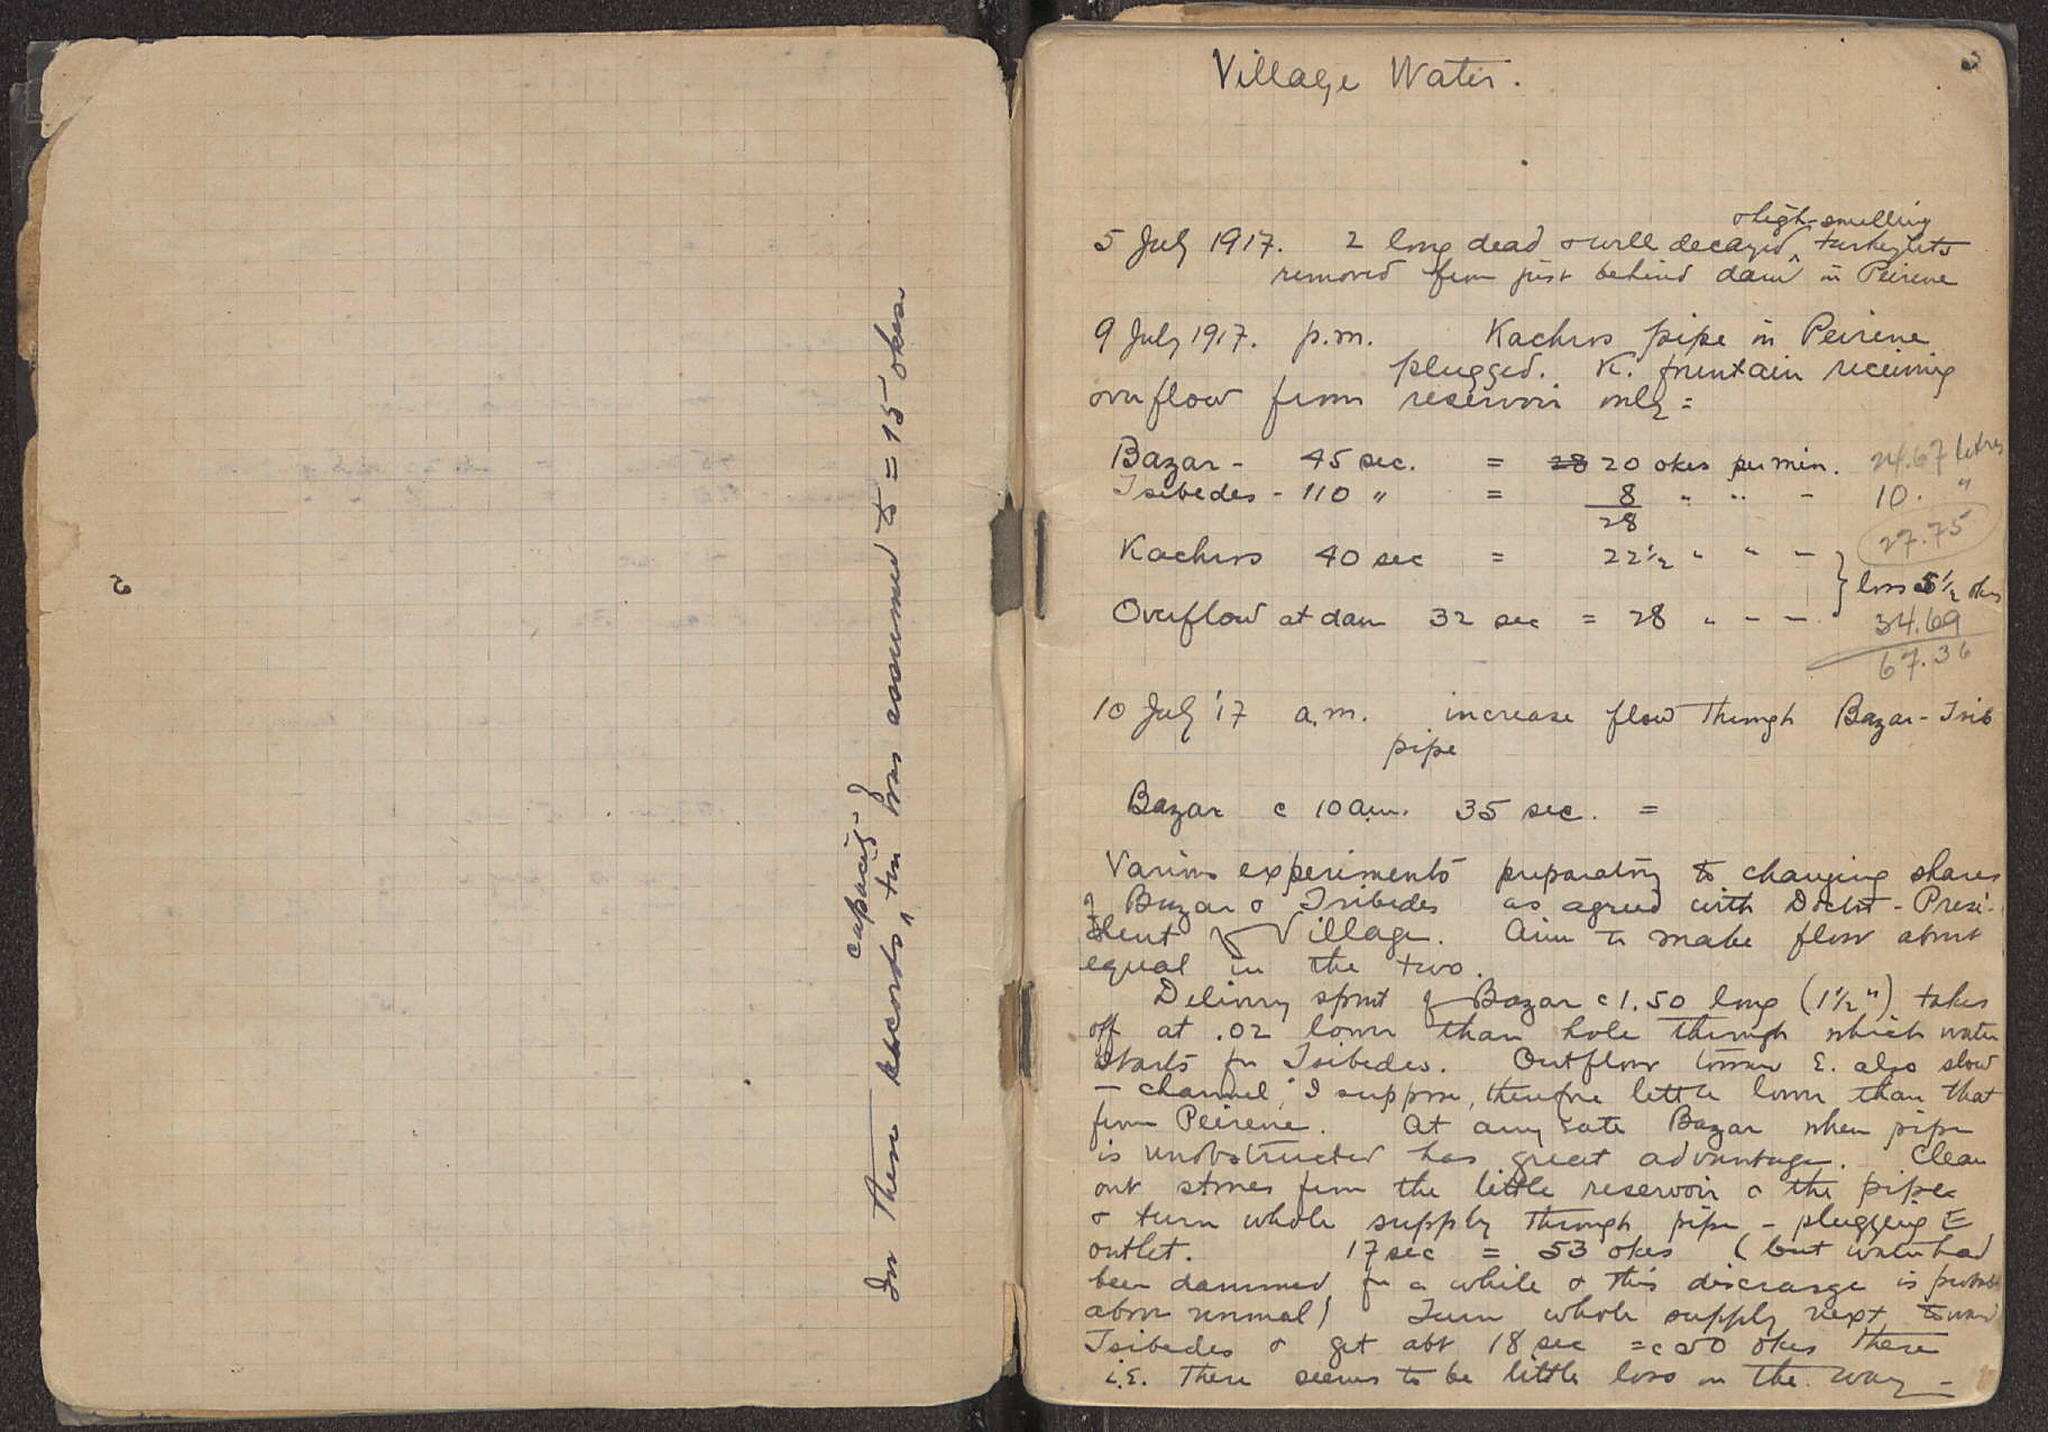 capacity
In these records, tin has assumed to = 15 okes
Village Water.
& high-smelling
5 July 1917. 2 long dead & well decayed turkeylets
removed from just behind dam in Peirene
9 July 1917. p.m. Kachros pipe in Peirene
plugged. K. fountain receiving
overflow from reservoir only =
Bazar - 45 sec. = 28 20 okes per min. 24.67 litres
Tsibedes - 110 " = 8 " " - 10. "
28
27.75
Kachros 40 sec = 22 1/2 " " -
loss 5 1/2 okes
Overflow at dam 32 sec = 28 " - - 34.69
67.36
10 July '17 a.m. increase flow through Bazar - Tsib
pipe
Bazar c 10 a.m. 35 sec. =
Various experiments preparatory to changing shares
of Bazar & Tsibedes as agreed with Doctor - Presi-
dent of Village. Aim to make flow about
equal in the two.
Delivery spout of Bazar c 1.50 long (1 1/2") takes
off at .02 lower than hole through which water
starts for Tsibedes. Outflow E. also slow
- channel, I suppose, therefore little lower than that
from Peirene. At any rate Bazar when pipe
is unobstructed has great advantage. Clean
out stones from the little reservoir & the pipe
& turn whole supply through pipe - plugging E
outlet. 17 sec = 53 okes (but water had
been dammed for a while & this discharge is probabl
above normal) Turn whole supply next toward
Tsibedes & get abt 18 sec = c 50 okes there
i.e. There seems to be little loss on the way -